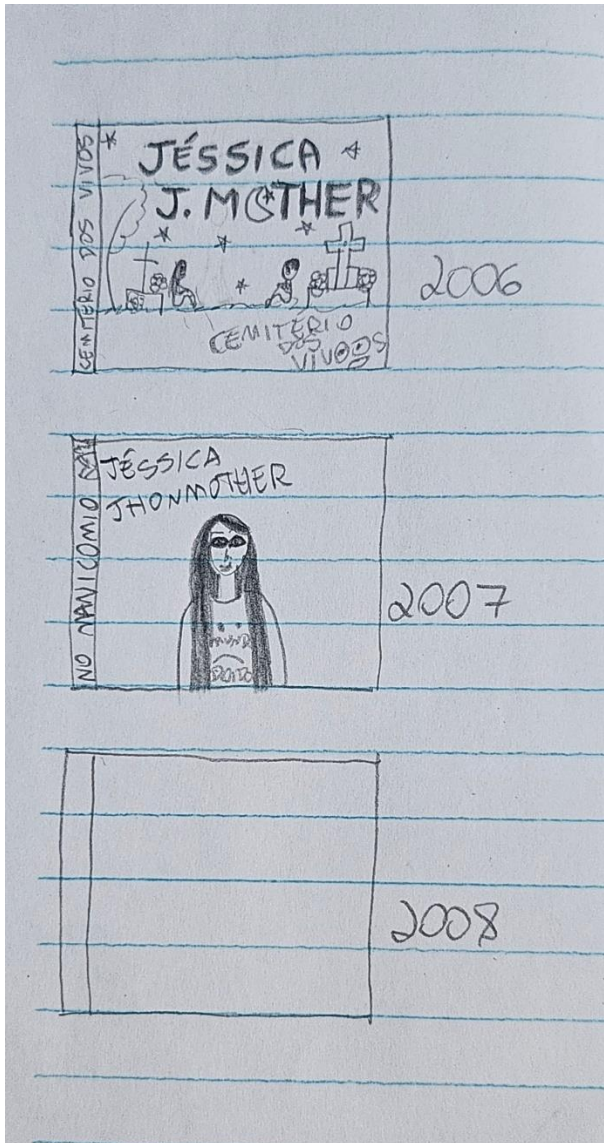 CEMITÉRIO DOS VIVOS
JÉSSICA
J. MOTHER
CEMITÉRIO
DOS
VIVOS
2006
NO MANICOMIO
JÉSSICA
JHONMOTHER
MUNDO
DOITO
2007
2008